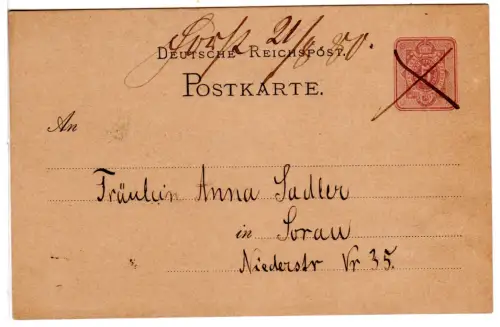 21/8 80.
DEUTSCHE REICHSPOST.
POSTKARTE.
An
Fräulein Anna Sadler
in Sorau
Niederstr Nr 35.